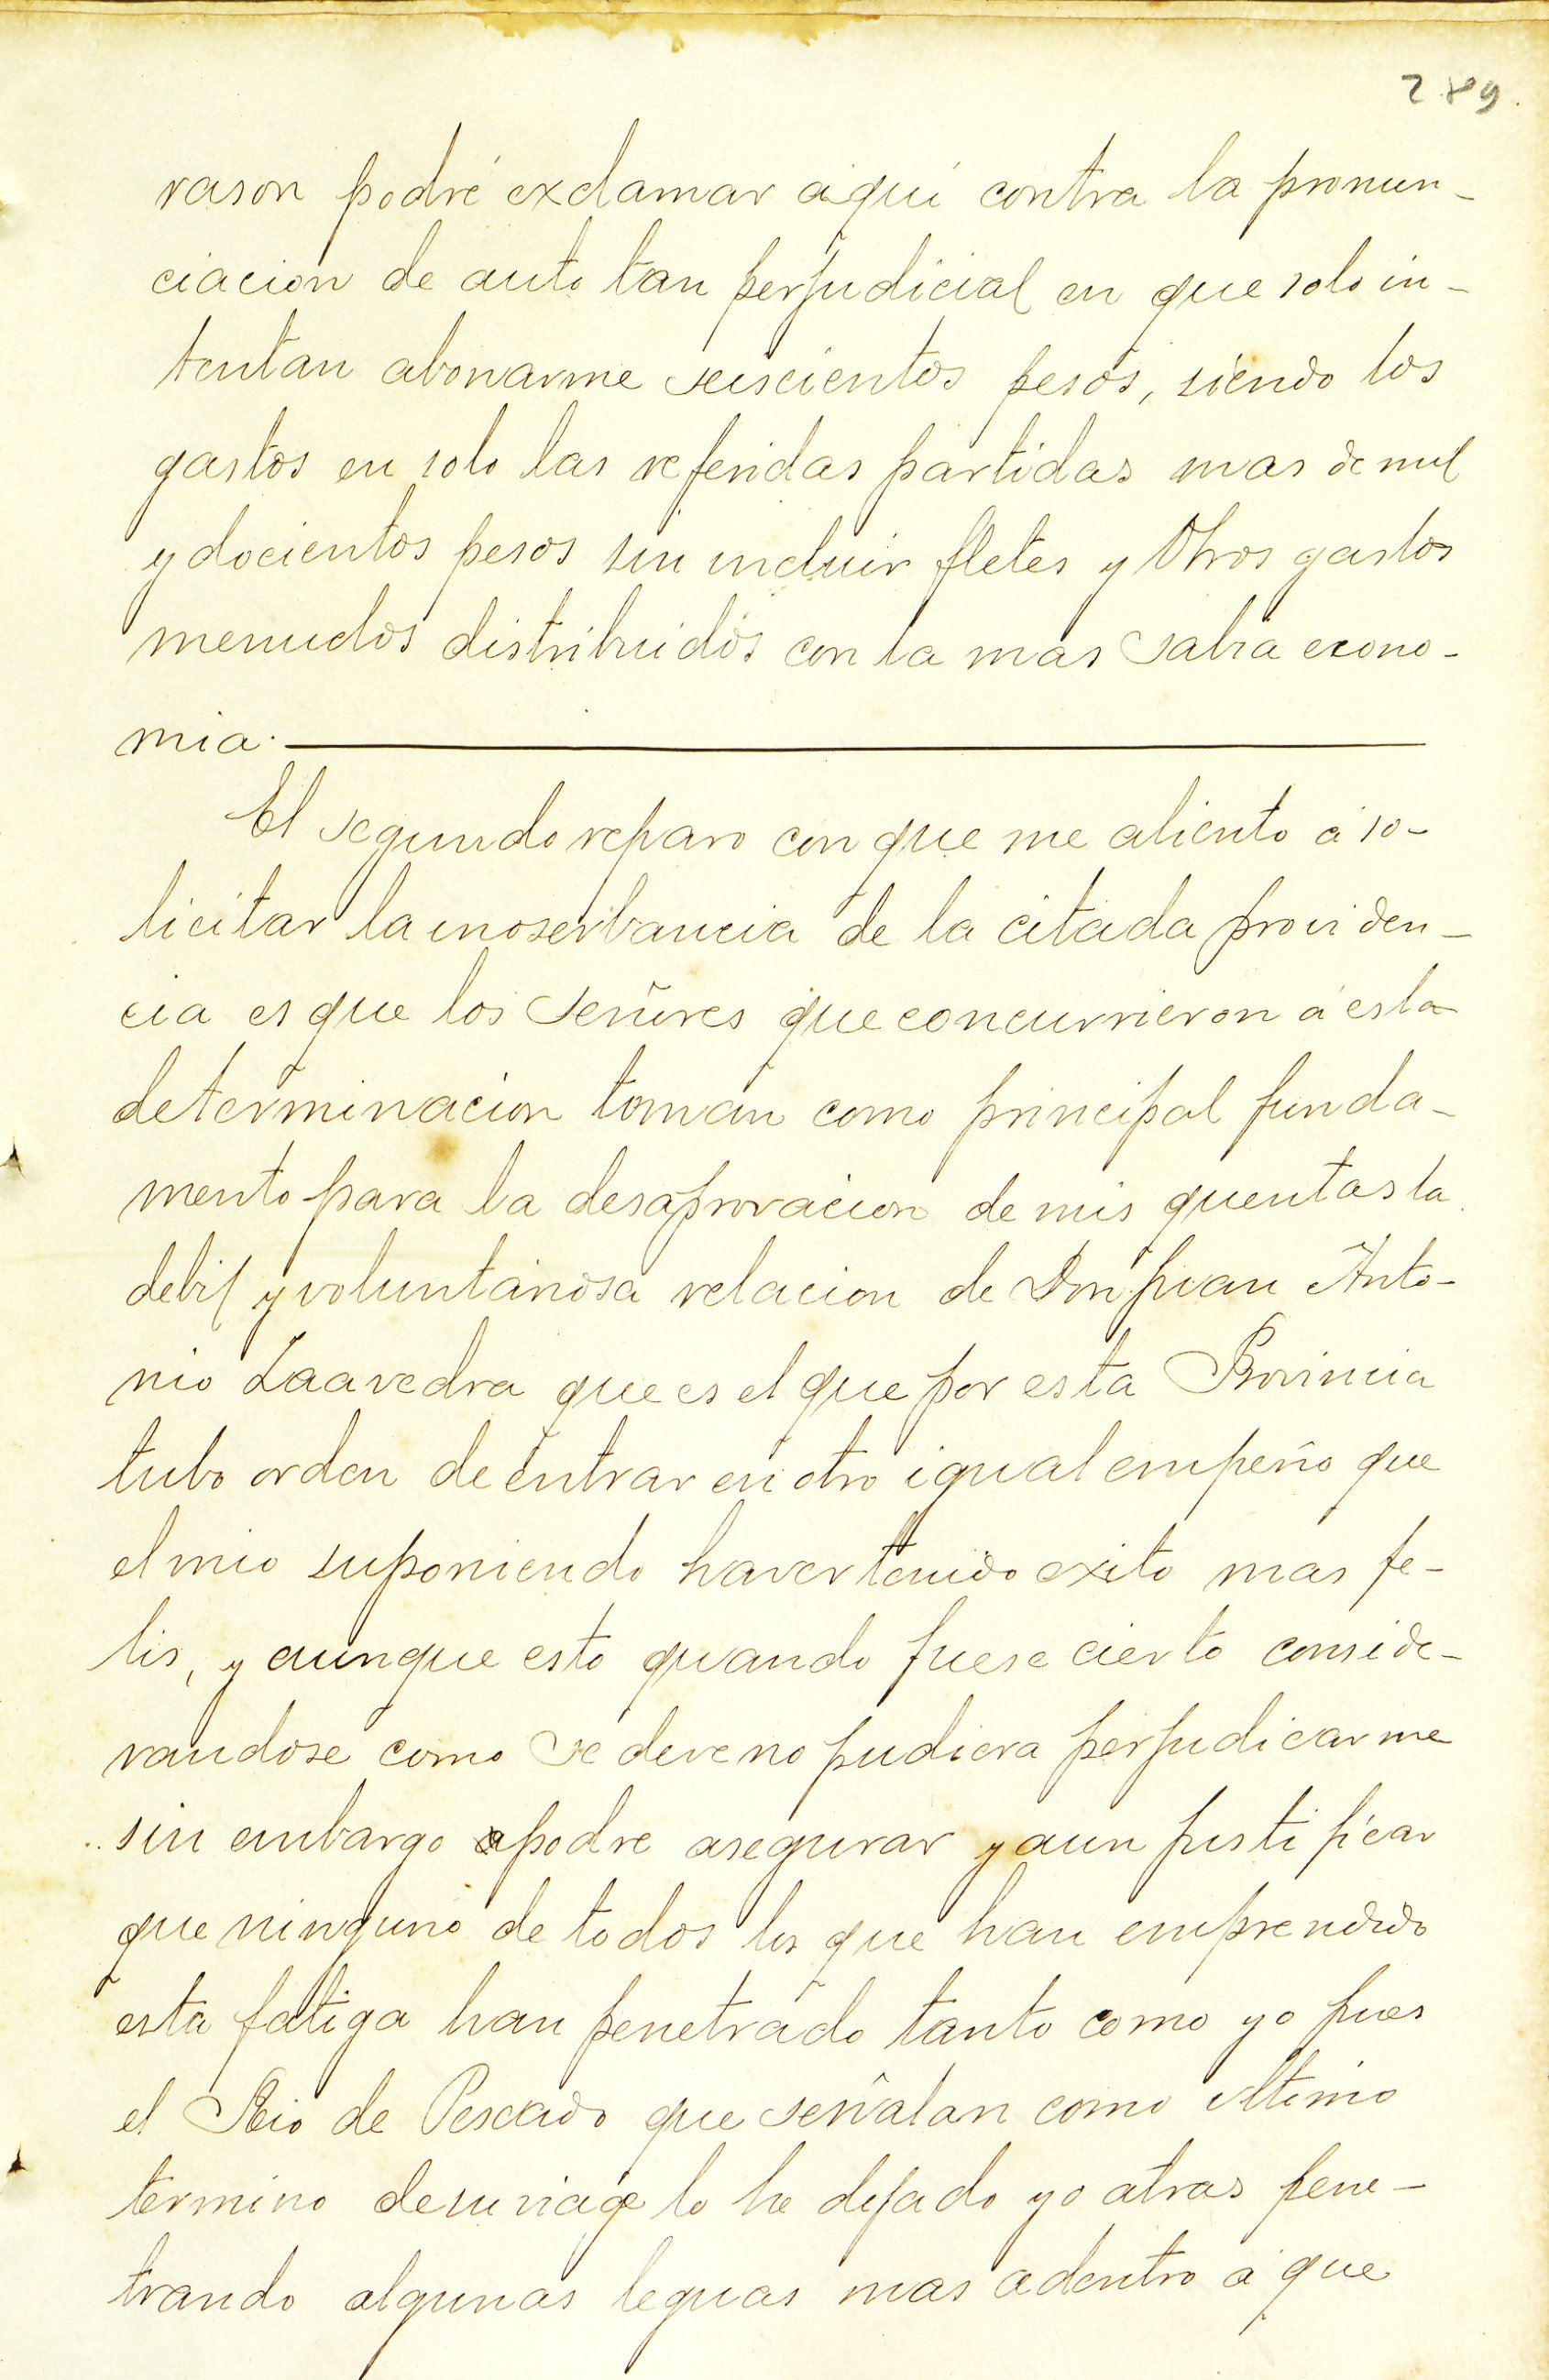 289.
rason podré exclamar aqui contra la pronun-
ciacion de auto tan perjudicial en que solo in-
tentan abonarme seiscientos pesos, siendo los
gastos en solo las referidas partidas mas de mil
y docientos pesos sin incluir fletes y Otros gastos
menudos distribuidos con la mas sabia econo-
mia.
El segundo reparo con que me aliento á so-
licitar la inoserbancia de la citada providen-
cia es que los Señores que concurrieron á esta
determinacion toman como principal funda-
mento para la desaprovacion de mis quentas la
debil y voluntariosa relacion de Don Juan Anto-
nio Zaavedra que es el que por esta Provincia
tubo orden de entrar en otro igual empeño que
el mio suponiendo haver tenido exito mas fe-
lis, y aunque esto quando fuese cierto conside-
randose como se deve no pudiera perjudicarme
sin embargo podre asegurar y aun justificar
que ninguno de todos los que han emprendido
esta fatiga han penetrado tanto como yo pues
el Rio de Pescado que señalan como ultimo
termino de su viage lo he dejado yo atras pene-
trando algunas leguas mas adentro á que